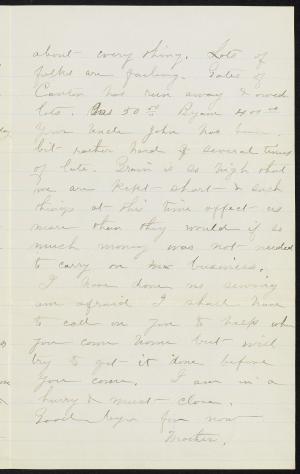 about every thing. Lots of
folks are failing. Gates of
Canton has run away & owed
lots. Us 50.00 Byam 400.00
Your Uncle John has been
bit rather hard & several times
of late. Grain is so high that
we are kept short & such
things at this time affect us
more than they would if so
much money was not needed
to carry on our business.
I have done no sewing
am afraid I shall have
to call on you to help when
you come home but will
try to get it done before
you come. I am in a
hurry & must close.
Good bye for now
Mother.